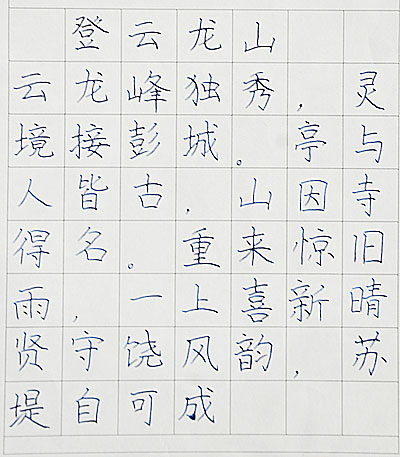 登云龙山
云龙峰独秀，灵
境接彭城。亭与
人皆古，山因寺
得名。重来惊旧
雨，一上喜新晴
贤守饶风韵，苏
堤自可成